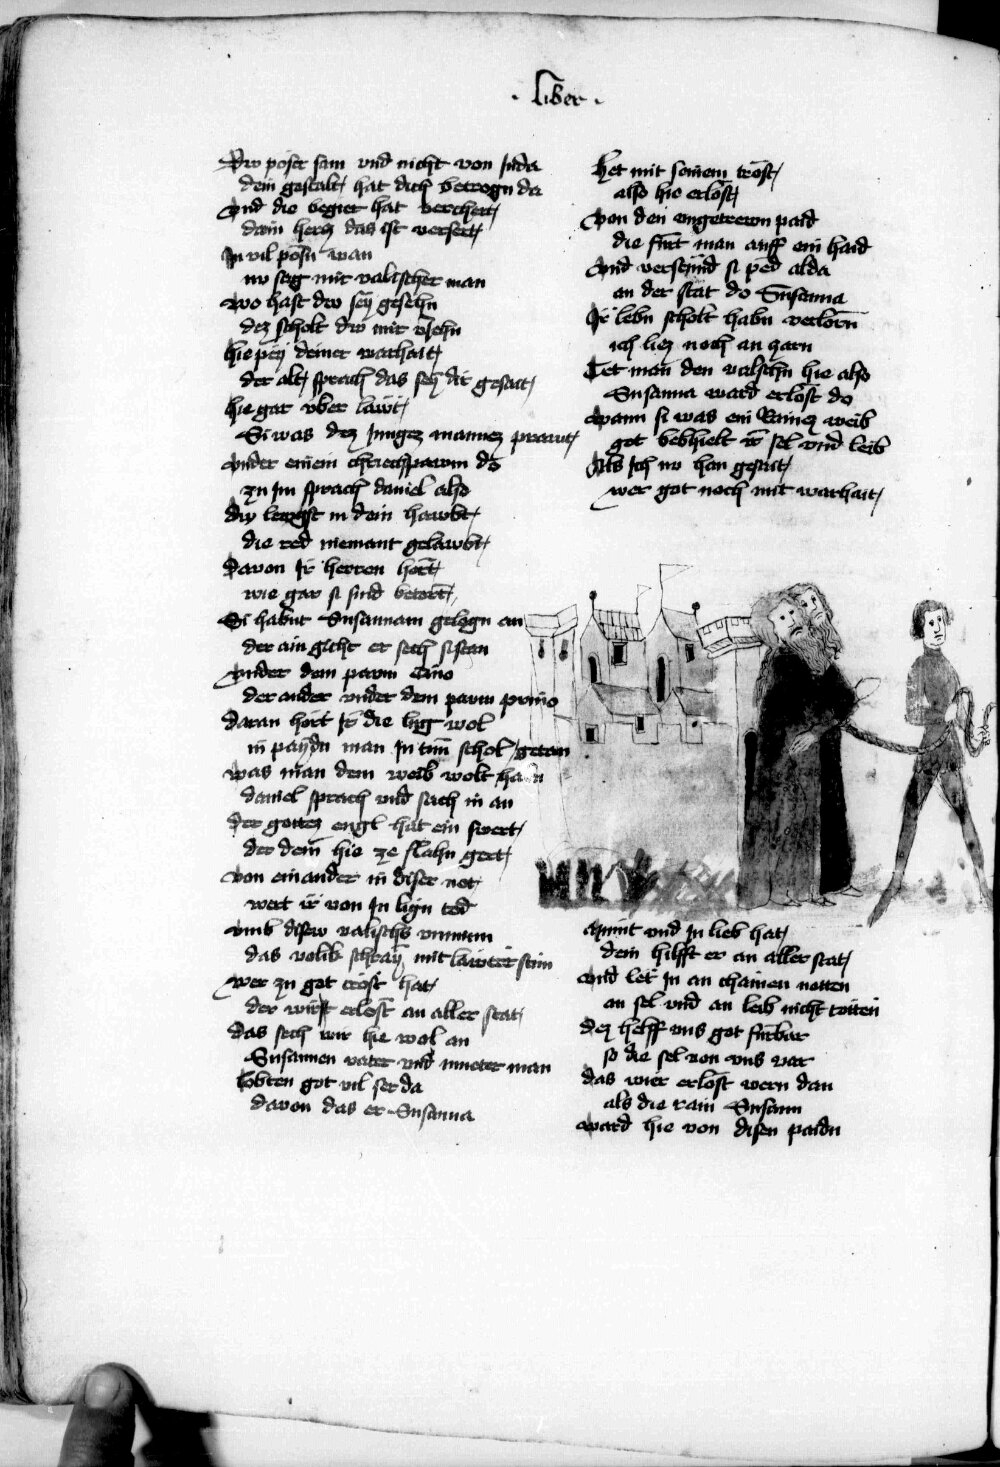 · Liber ·
Dw pöser sam vnd nicht von Juda
dein gestalt hat dich betrogn da
vnd die begier hat verchert
dain hercz das ist versert
In vil pösn wan
nv sag mir valischer man
wo hast dw sey gesehn
dez scholt dw mir iehn
hie pey deiner warhait
der alt sprach das sey dir gesait
hie gar vber lawt
Si was dez Jungez mannez prawt
vnder einem chriechpawm do
zu Jm sprach daniel also
dw lewgst in dein hawbt
die red niemant gelawbt
Davon Jr herren hört
wie gar si sind betört
Si habnt Susannam gelogn an
der ain gicht er sech si stan
vnder dem pawm Cino
der ander vnder dem pawm prino
Daran hört Jr die lug wol
in paydn man Jn tun schol getan
was man dem weib wolt habn
daniel sprach vnd sach in an
der gottez engl hat ein swert
der dem hie ze slahn gert
von einander in diser not
wert ir von Jn lign tod
vmb disew valischew
das volik schray mit lawter stim
wer zu got trost hat
der wirt erlost an aller stat
das sech wir hie wol an
Susannen vater vnd mueter man
lobten got vil ser da
davon das er Susanna
Het mit seinem trost
also hie erlöst
von den vngetrewn paid
die fürt man auff ein haid
vnd verstaind si ped alda
an der stat do Susanna
Ir lebn scholt habn verlorn
ich liez noch an zarn
Tet man den valschn hie also
Susanna ward erlost do
wann si was ein Rainez weib
got behielt ir sel vnd leib
Als Jch nv han gesait
wer got noch mit warhait
Mint vnd Jn lieb hat
dem hilfft er an aller stat
vnd let Jn an chainen notten
an sel vnd an leib nicht tötten
dez helff vns got fürbar
so die sel von vns var
das wier erlost wern dan
als die rain Susann
ward hie von disen paidn